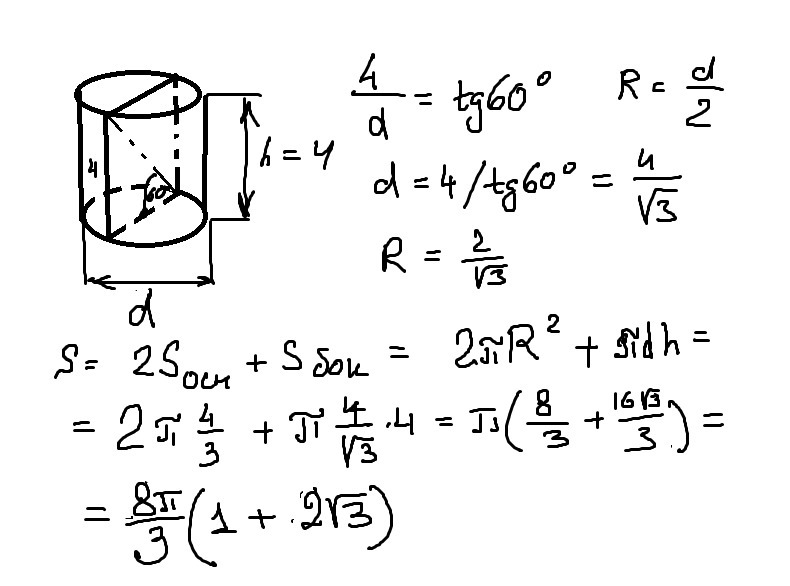 4/d = tg60° R = d/2
4 60° h = 4
d = 4/tg60° = 4/√3
R = 2/√3
d
S = 2Sосн + Sбок = 2πR² + πdh =
= 2π 4/3 + π 4/√3 · 4 = π(8/3 + 16√3/3) =
= 8π/3 (1 + 2√3)